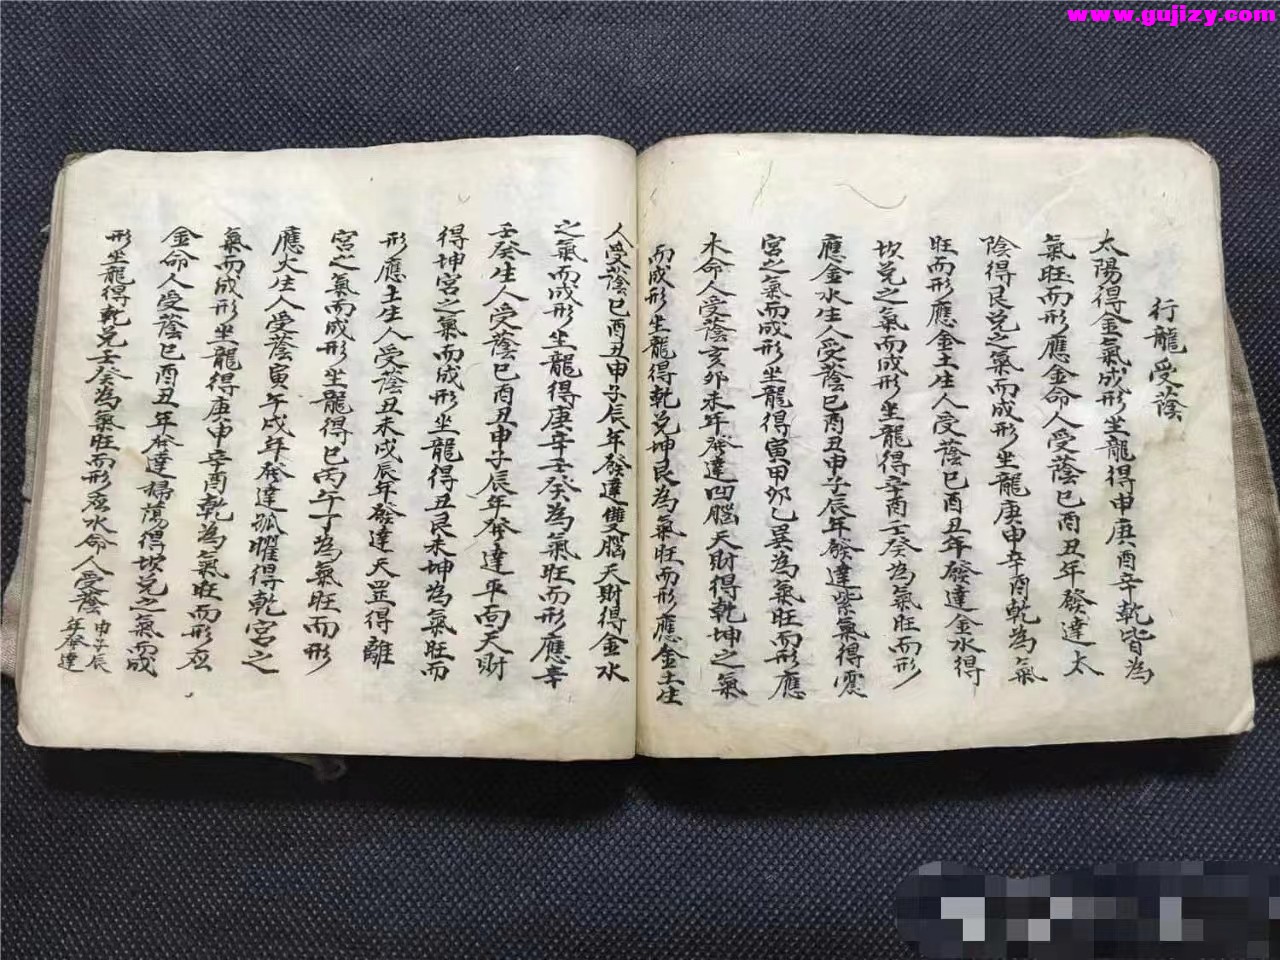 www.gujizy.com
行龍受蔭
太陽得金氣成形坐龍得申庚酉辛乾皆為
氣旺而形應金命人受蔭巳酉丑年發達太
陰得艮兌之氣而成形坐龍庚申辛酉乾為氣
旺而形應金土生人受蔭巳酉丑年發達金水得
坎兌之氣而成形坐龍得辛酉壬癸為氣旺而形
應金水生人受蔭巳酉丑申子辰年發達紫氣得震
宮之氣而成形坐龍得寅甲卯乙巽為氣旺而形應
木命人受蔭亥卯未年發達凹腦天財得乾坤之氣
而成形坐龍得乾兌坤艮為氣旺而形應金土生
人受蔭巳酉丑申子辰年發達雙腦天財得金水
之氣而成形坐龍得庚辛壬癸為氣旺而形應辛
壬癸生人受蔭巳酉丑申子辰年發達平面天財
得坤宮之氣而成形坐龍得丑艮未坤為氣旺而
形應土生人受蔭丑未戌辰年發達天罡得離
宮之氣而成形坐龍得巳丙午丁為氣旺而形
應火生人受蔭寅午戌年發達孤曜得乾宮之
氣而成形坐龍得庚申辛酉乾為氣旺而形应
金命人受蔭巳酉丑年發達掃蕩得坎兌之氣而成
形坐龍得乾兌壬癸為氣旺而形应水命人受蔭
申子辰
年發達